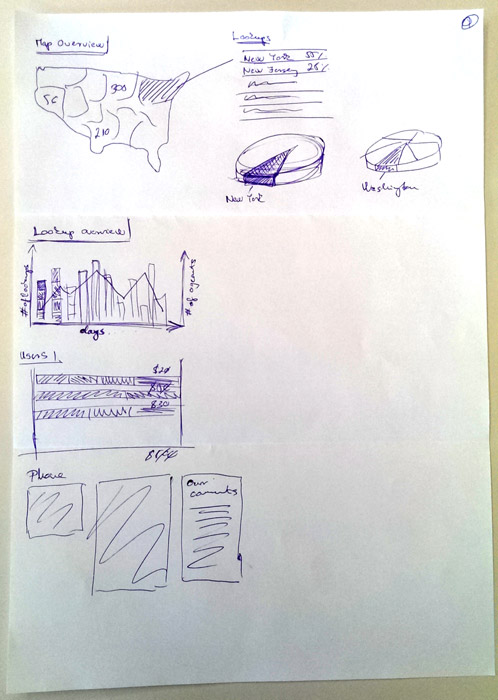 Map Overview
Lookups
New York 55%
New Jersey 25%
300
56
210
New York
Washington
Lookup overview
# of lookups
# of agents
days.
Users
$20
$30
Phone
Our
comments